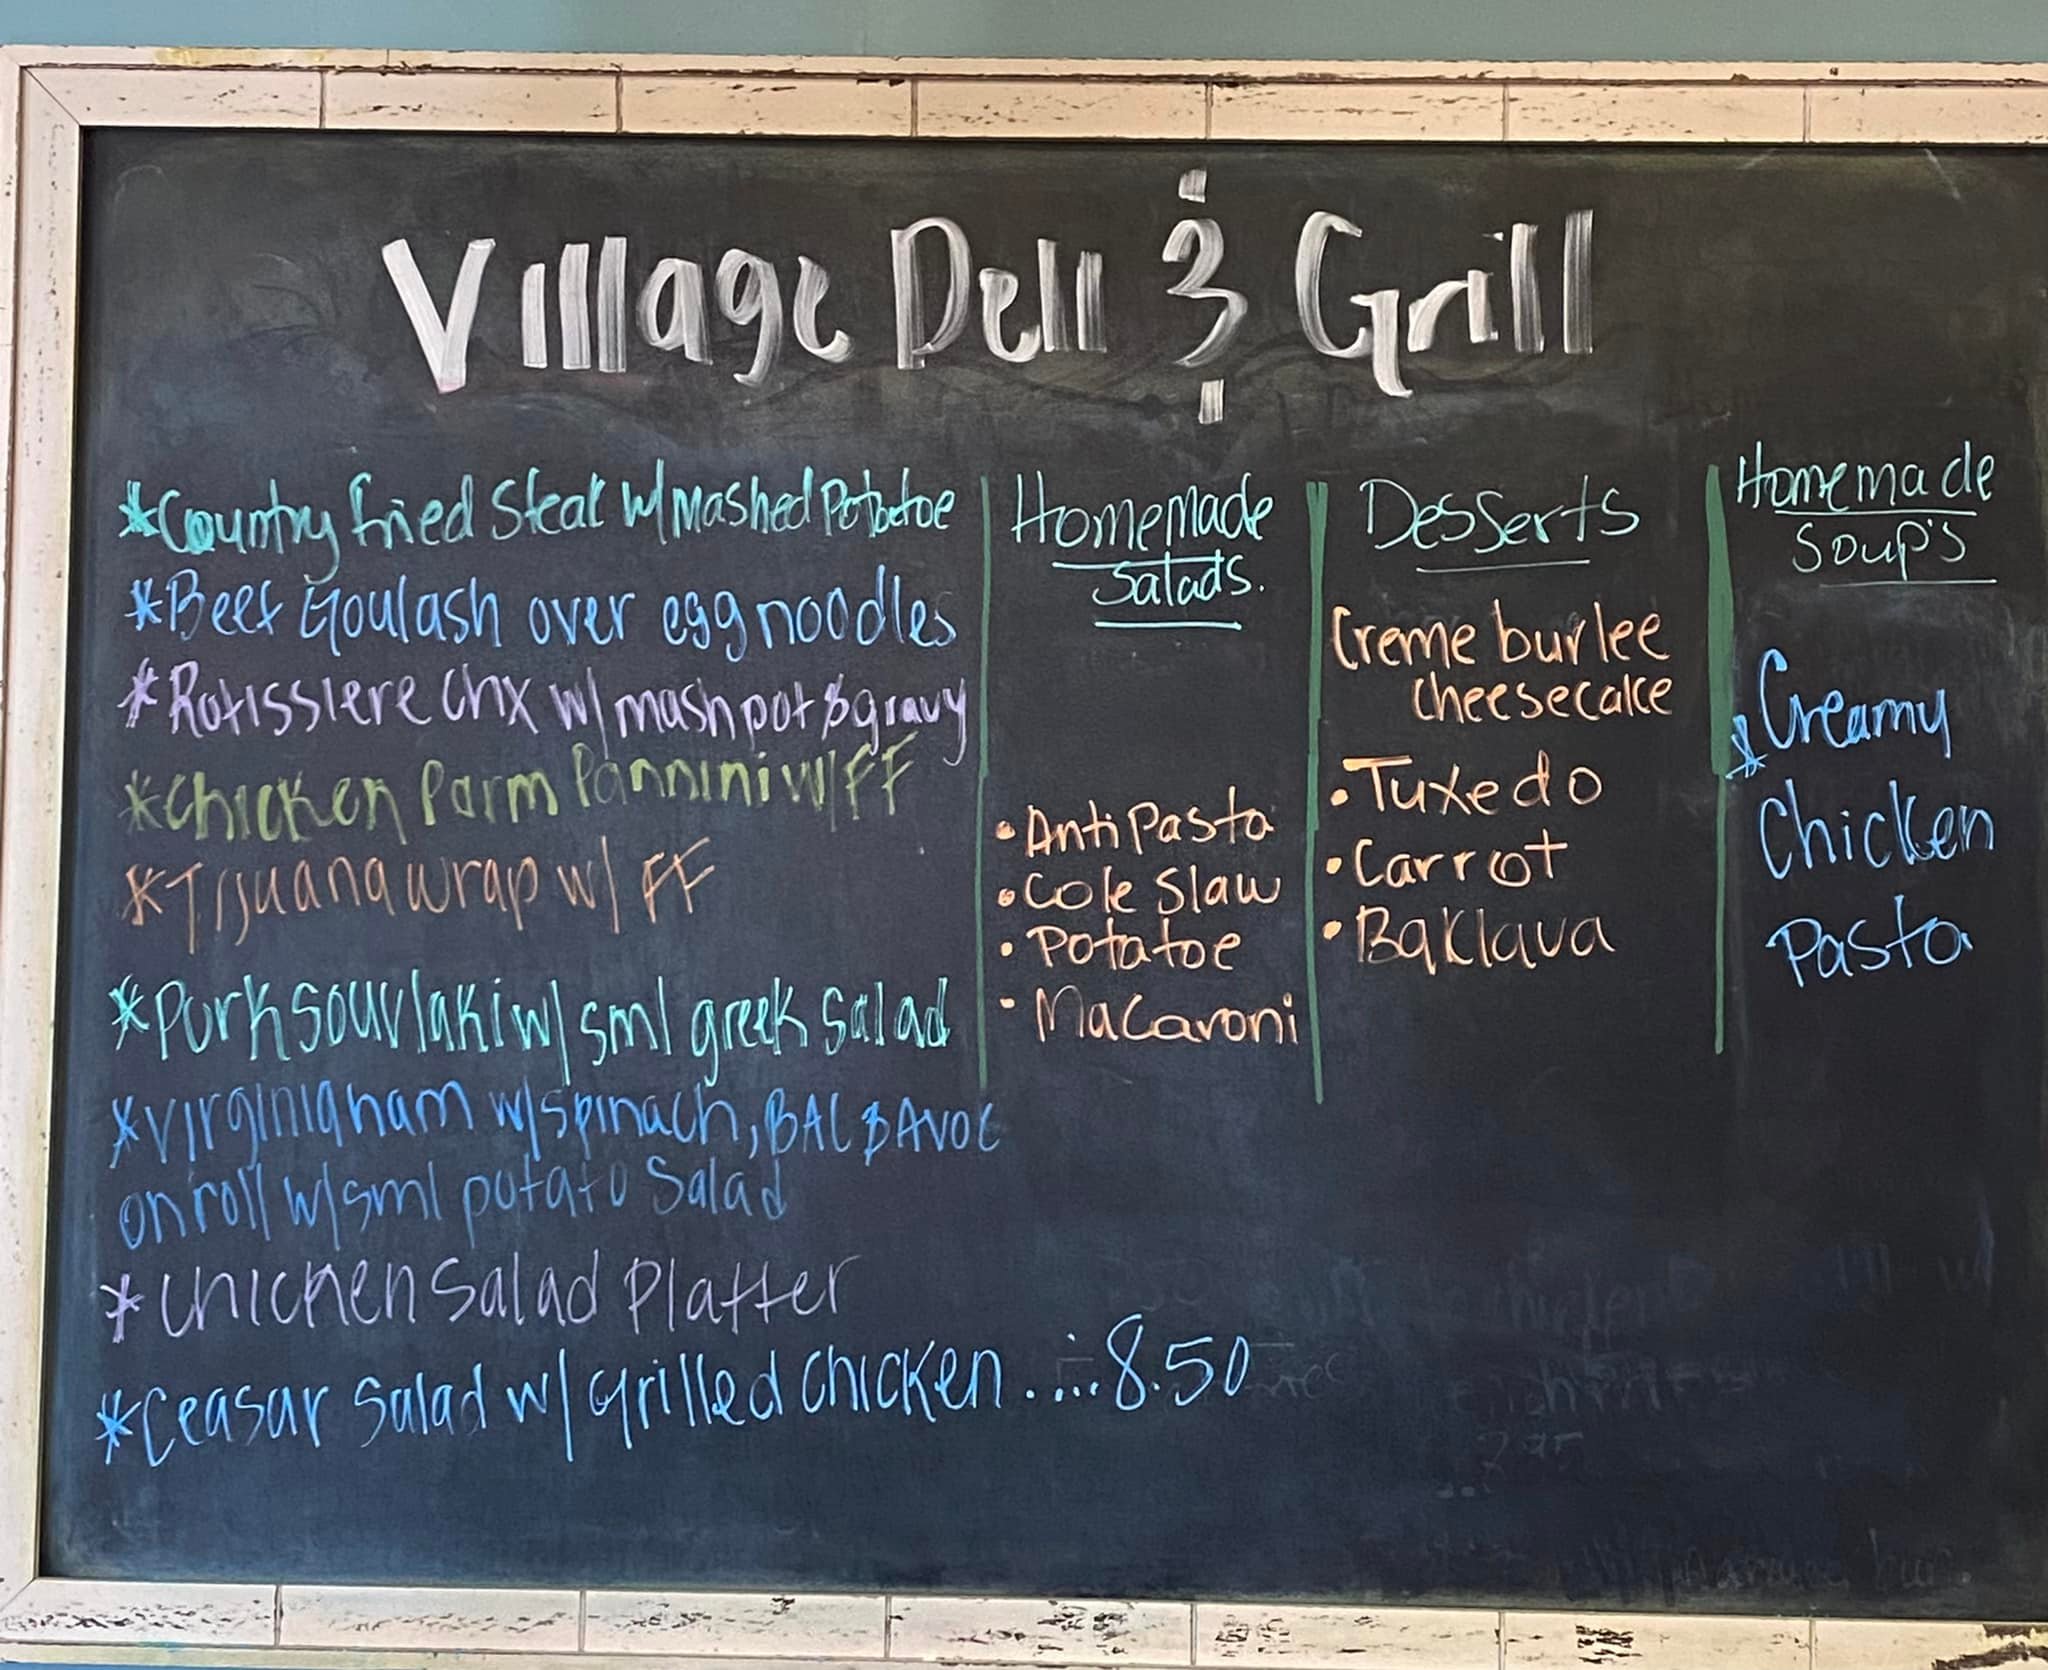 Village Deli & Grill
*Country fried Steak w/ Mashed Potatoe
*Beef Goulash over egg noodles
*Rotissiere Chx w/ mash pot & gravy
*Chicken Parm Pannini w/ FF
*Tijuana wrap w/ FF
*Pork Souvlaki w/ sml greek Salad
*Virginia ham w/ spinach, BAC & AVOC
on roll w/ sml potato Salad
*Chicken Salad Platter
*Ceasar Salad w/ Grilled Chicken ......8.50
Homemade
Salads.
• AntiPasta
• Cole Slaw
• Potatoe
• Macaroni
Desserts
Creme burlee
Cheesecake
• Tuxedo
• Carrot
• Baklava
Homemade
Soup's
*Creamy
Chicken
Pasta